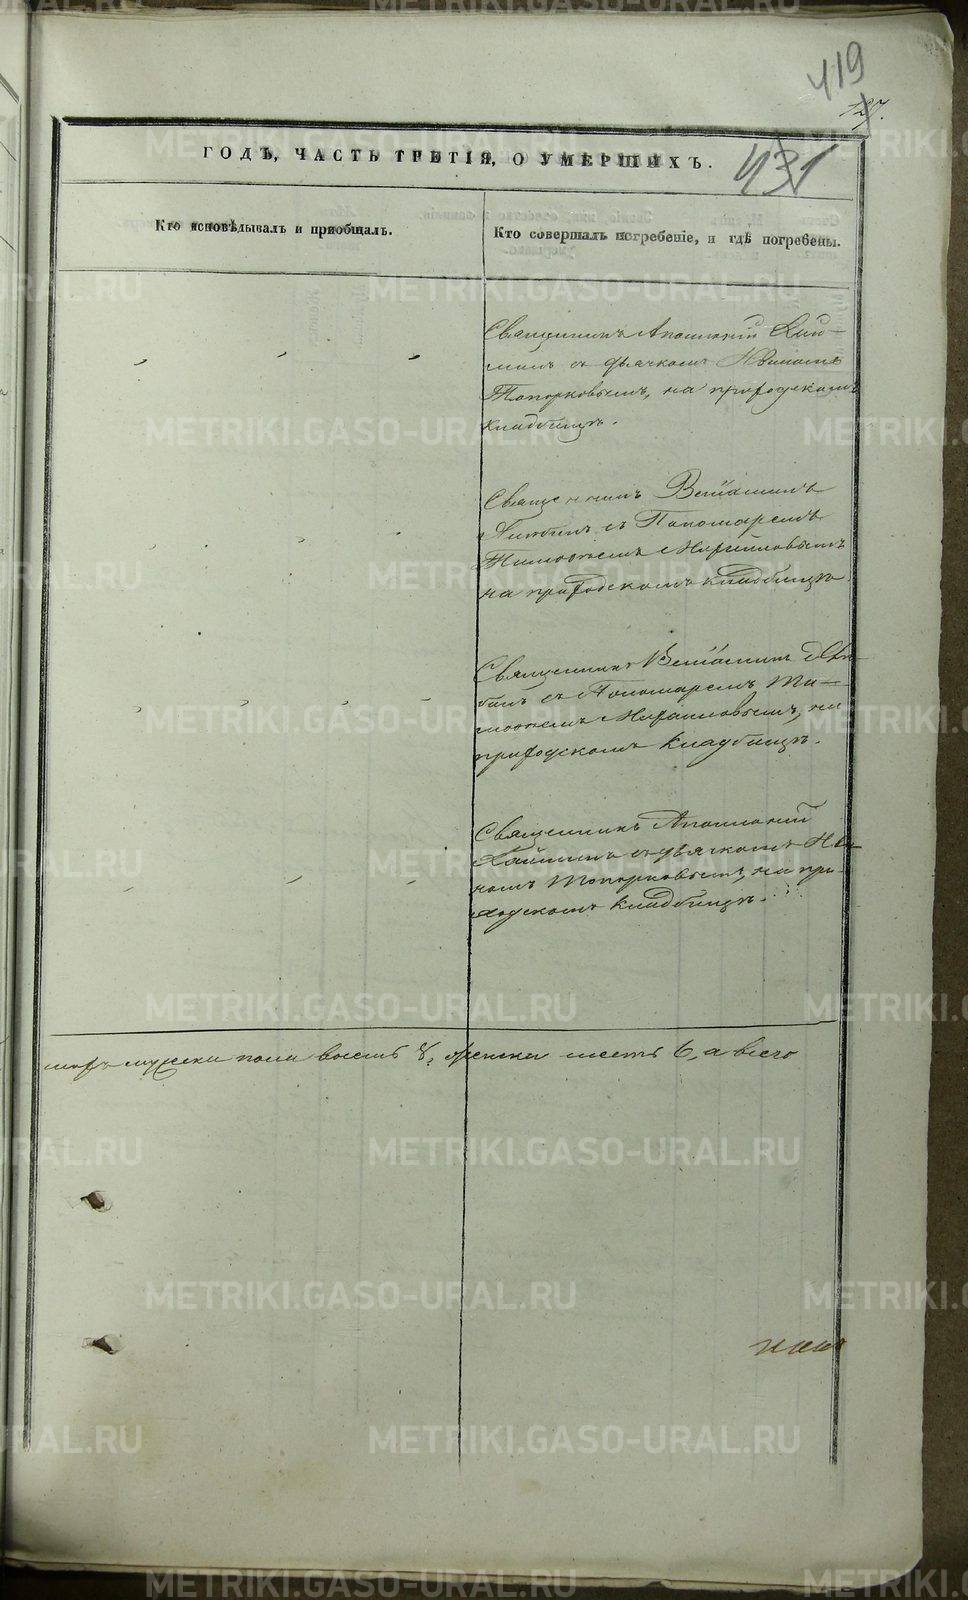 419
127.
431
ГОДЪ, ЧАСТЬ ТРЕТІЯ, О УМЕРШИХЪ.
Кто исповѣдывалъ и пріобщалъ.
Кто совершалъ погребеніе, и гдѣ погребены.
Священникъ Аполлоній
съ дьячкомъ
Топорковымъ, на приходскомъ
кладбищѣ.
Священникъ Веніаминъ
съ Пономаремъ
на приходскомъ кладбищѣ
Священникъ Веніаминъ
съ Пономаремъ Ти-
на
приходскомъ кладбищѣ.
Священникъ Аполлоній
съ дьячкомъ
Топорковымъ, на при-
ходскомъ кладбищѣ.
мужска пола восемь 8, женска шесть 6, а всего
METRIKI.GASO-URAL.RU